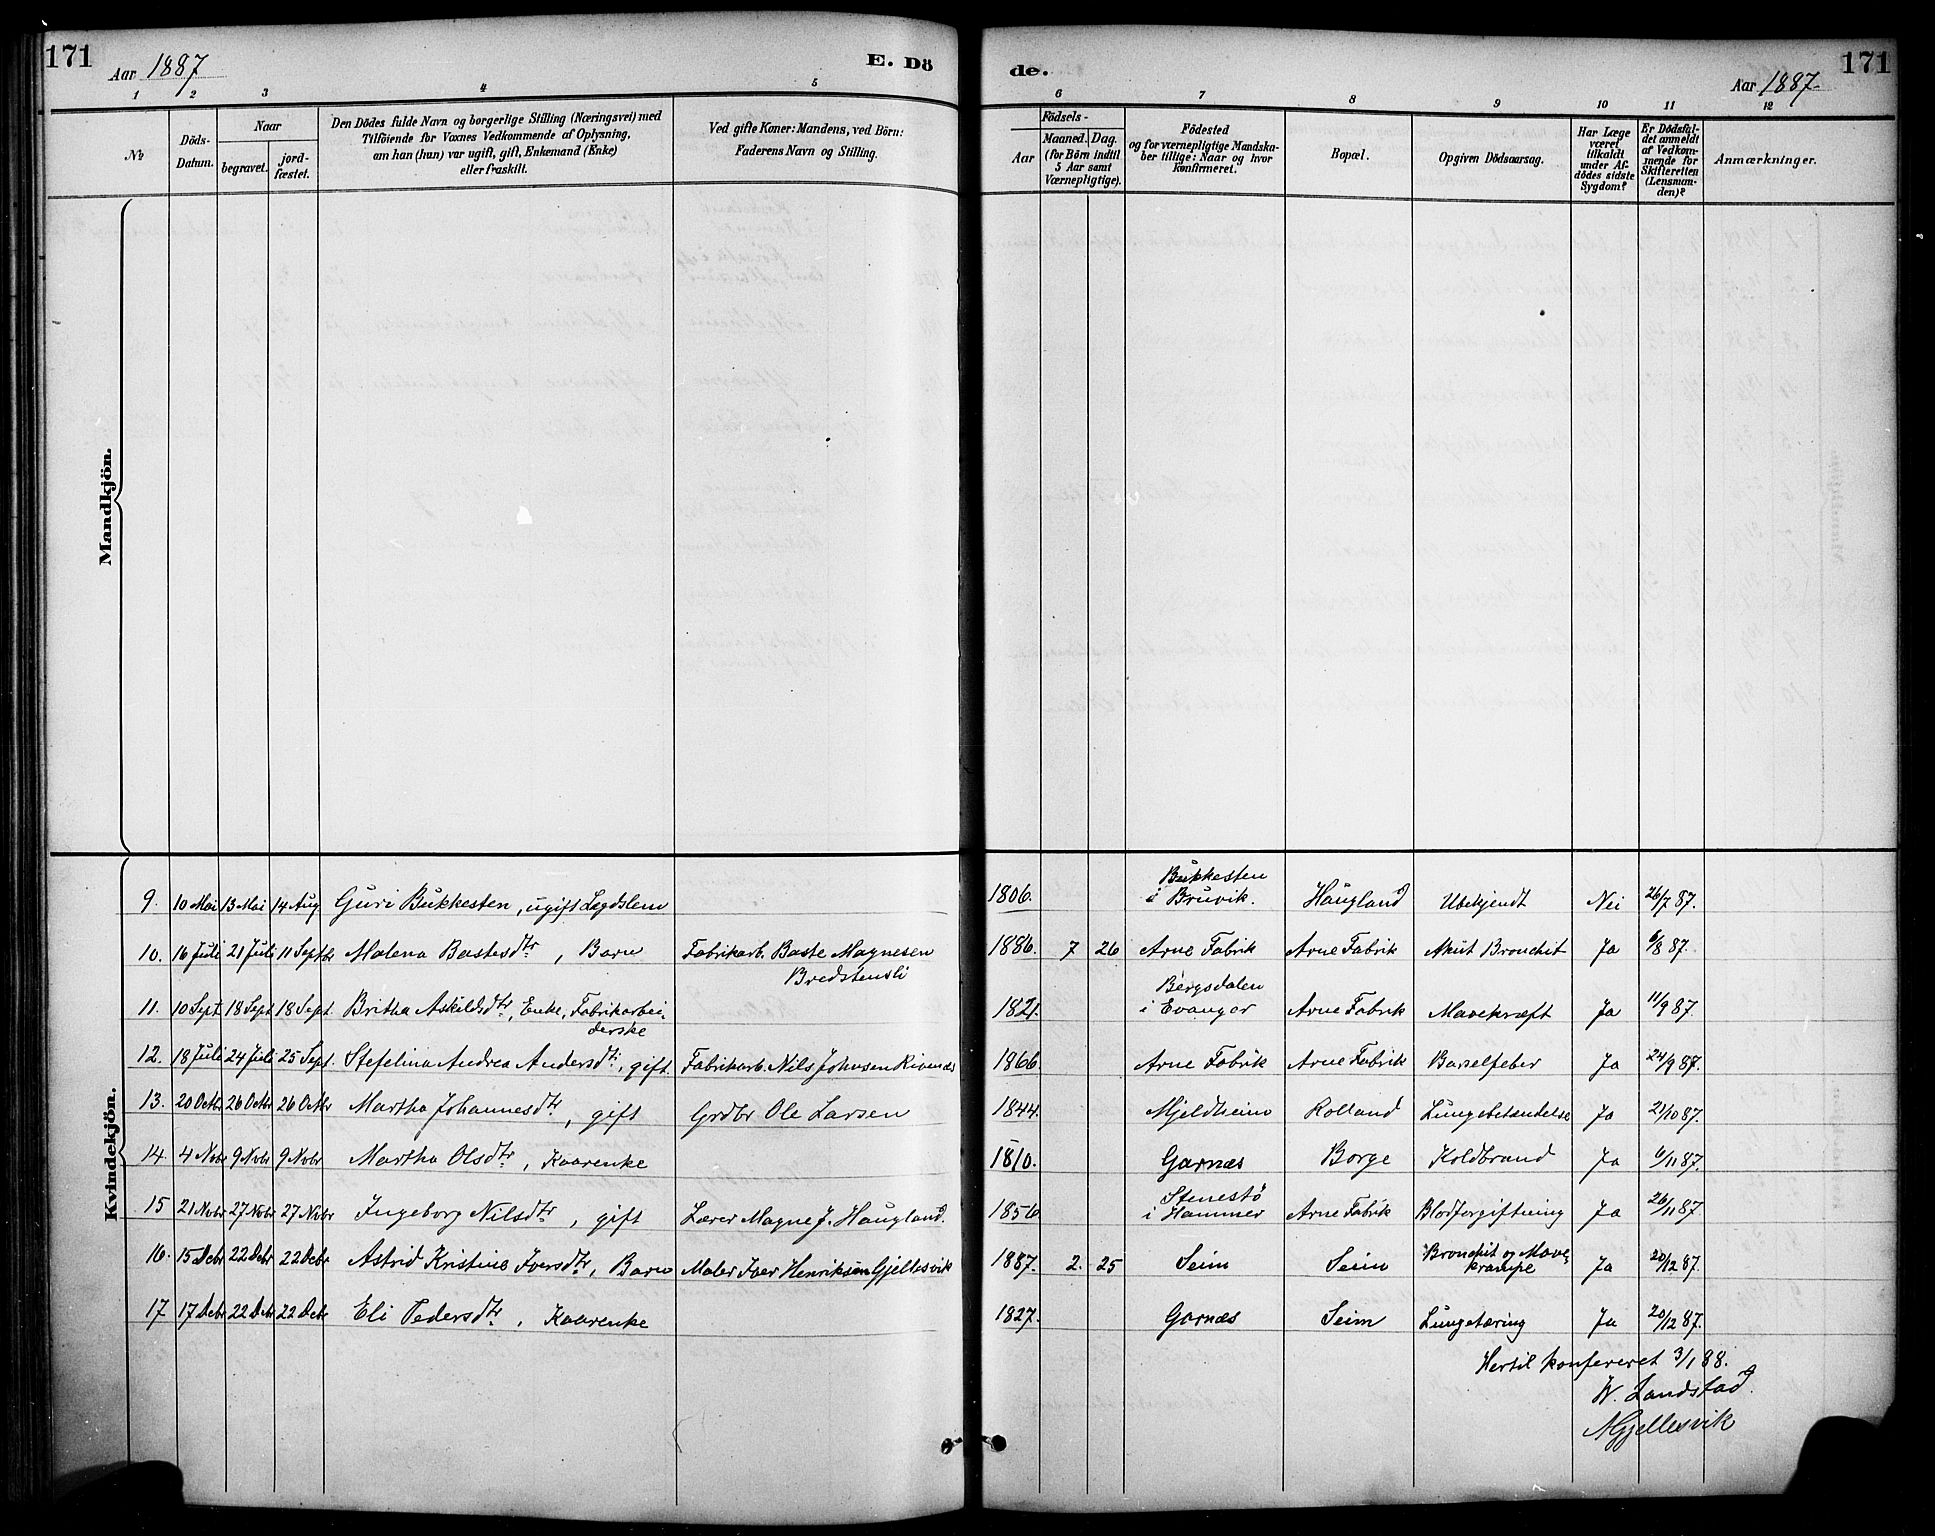 171
Aar 1887
E. Dö
de.
Aar 1887.
171
1 2 3 4 5 6 7 8 9 10 11 12
No
Döds-
Datum.
Naar
begravet.
jord-
fæstet.
Den Dödes fulde Navn og borgerlige Stilling (Næringsvei) med
Tilföiende for Voxnes Vedkommende af Oplysning,
om han (hun) var ugift, gift, Enkemand (Enke)
eller fraskilt.
Ved gifte Koner: Mandens, ved Börn:
Faderens Navn og Stilling.
Födsels-
Aar
Maaned. Dag.
(for Börn indtil
5 Aar samt
Værnepligtige).
Födested
og for værnepligtige Mandska-
ber tillige: Naar og hvor
konfirmeret.
Bopæl.
Opgiven Dödsaarsag.
Har Læge
været
tilkaldt
under Af-
dödes sidste
Sygdom?
Er Dödsfal-
det anmeldt
af Vedkom-
mende for
Skifteretten
(Lensman-
den)?
Anmærkninger.
Mandkjön.
Kvindekjön.
9. 10 Mai 13 Mai 14 Aug Guri Bukkesten, ugift Lægdslem 1806. Bukkesten i Bruvik. Haugland Ubekjendt Nei 26/7 87.
10. 16 Juli 21 Juli 11 Septbr Malena Bastesdtr, Barn Fabrikarb. Baste Magnesen Bredstensli 1886. 7 26 Arne Fabrik Arne Fabrik Akut Bronchit Ja 6/8 87.
11. 10 Sept 18 Sept 18 Sept. Britha Askildsdtr, Enke, Fabrikarbeiderske 1821. Bergsdalen i Evanger Arne Fabrik Mavekræft Ja 11/9 87.
12. 18 Juli 24 Juli 25 Sept. Stefelina Andrea Andersdtr, gift Fabrikarb. Nils Johnsen Rivenæs 1866. Arne Fabrik Arne Fabrik Barselfeber Ja 24/9 87.
13. 20 Octbr 26 Octbr 26 Octbr Martha Johannesdtr, gift Grdbr Ole Larsen 1844. Mjeldheim Rolland Lungebetændelse Ja 21/10 87.
14. 4 Novbr 9 Novbr 9 Novbr Martha Olsdtr, Kaarenke 1810. Garnæs Borge Koldbrand Ja 6/11 87.
15 21 Novbr 27 Novbr 27 Novbr Ingeborg Nilsdtr, gift Lærer Magne J. Haugland. 1856 Stenestö i Hammer Arne Fabrik Blodforgiftning Ja 26/11 87.
16. 15 Debr 22 Debr 22 Debr Astrid Kristine Iversdtr, Barn Maler Iver Henriksen Gjellesvik 1887. 2. 25 Seim Seim Bronchit og Mavekrampe Ja 20/12 87.
17 17 Debr 22 Debr 22 Debr Eli Pedersdtr, Kaarenke 1827. Garnæs Seim Lungetæring Ja 20/12 87.
Hertil konfereret 3/1 88.
W. Landstad.
NGjellesvik